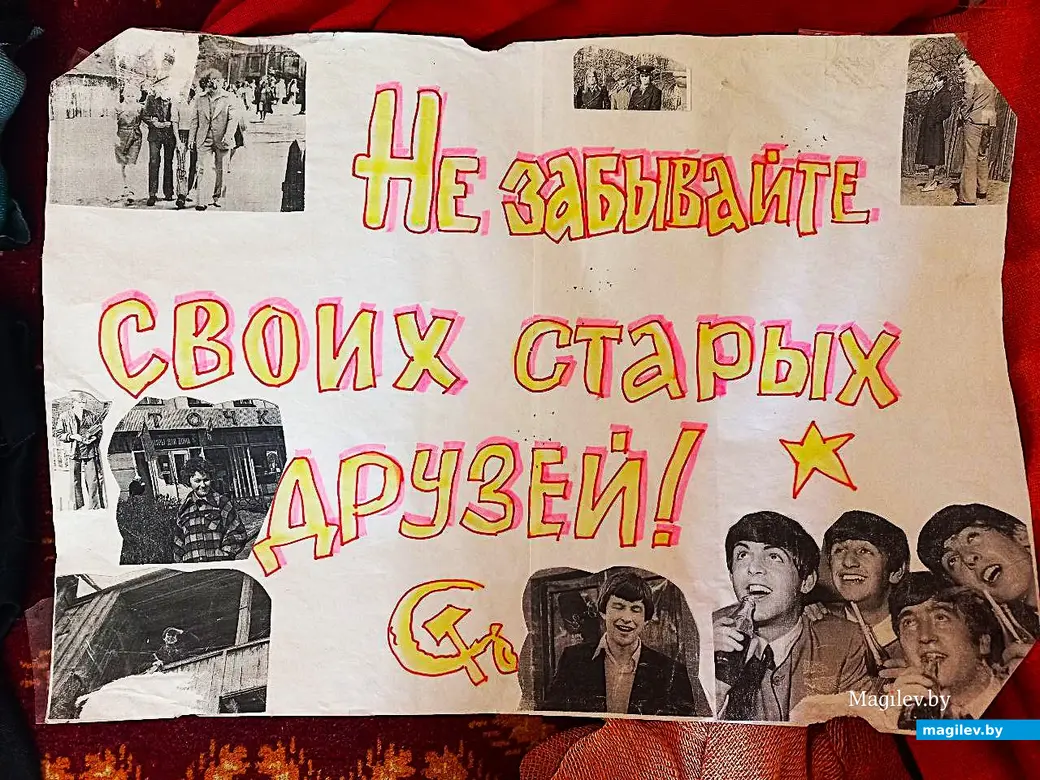 Не забывайте
своих старых
друзей!
Magilev.by
magilev.by